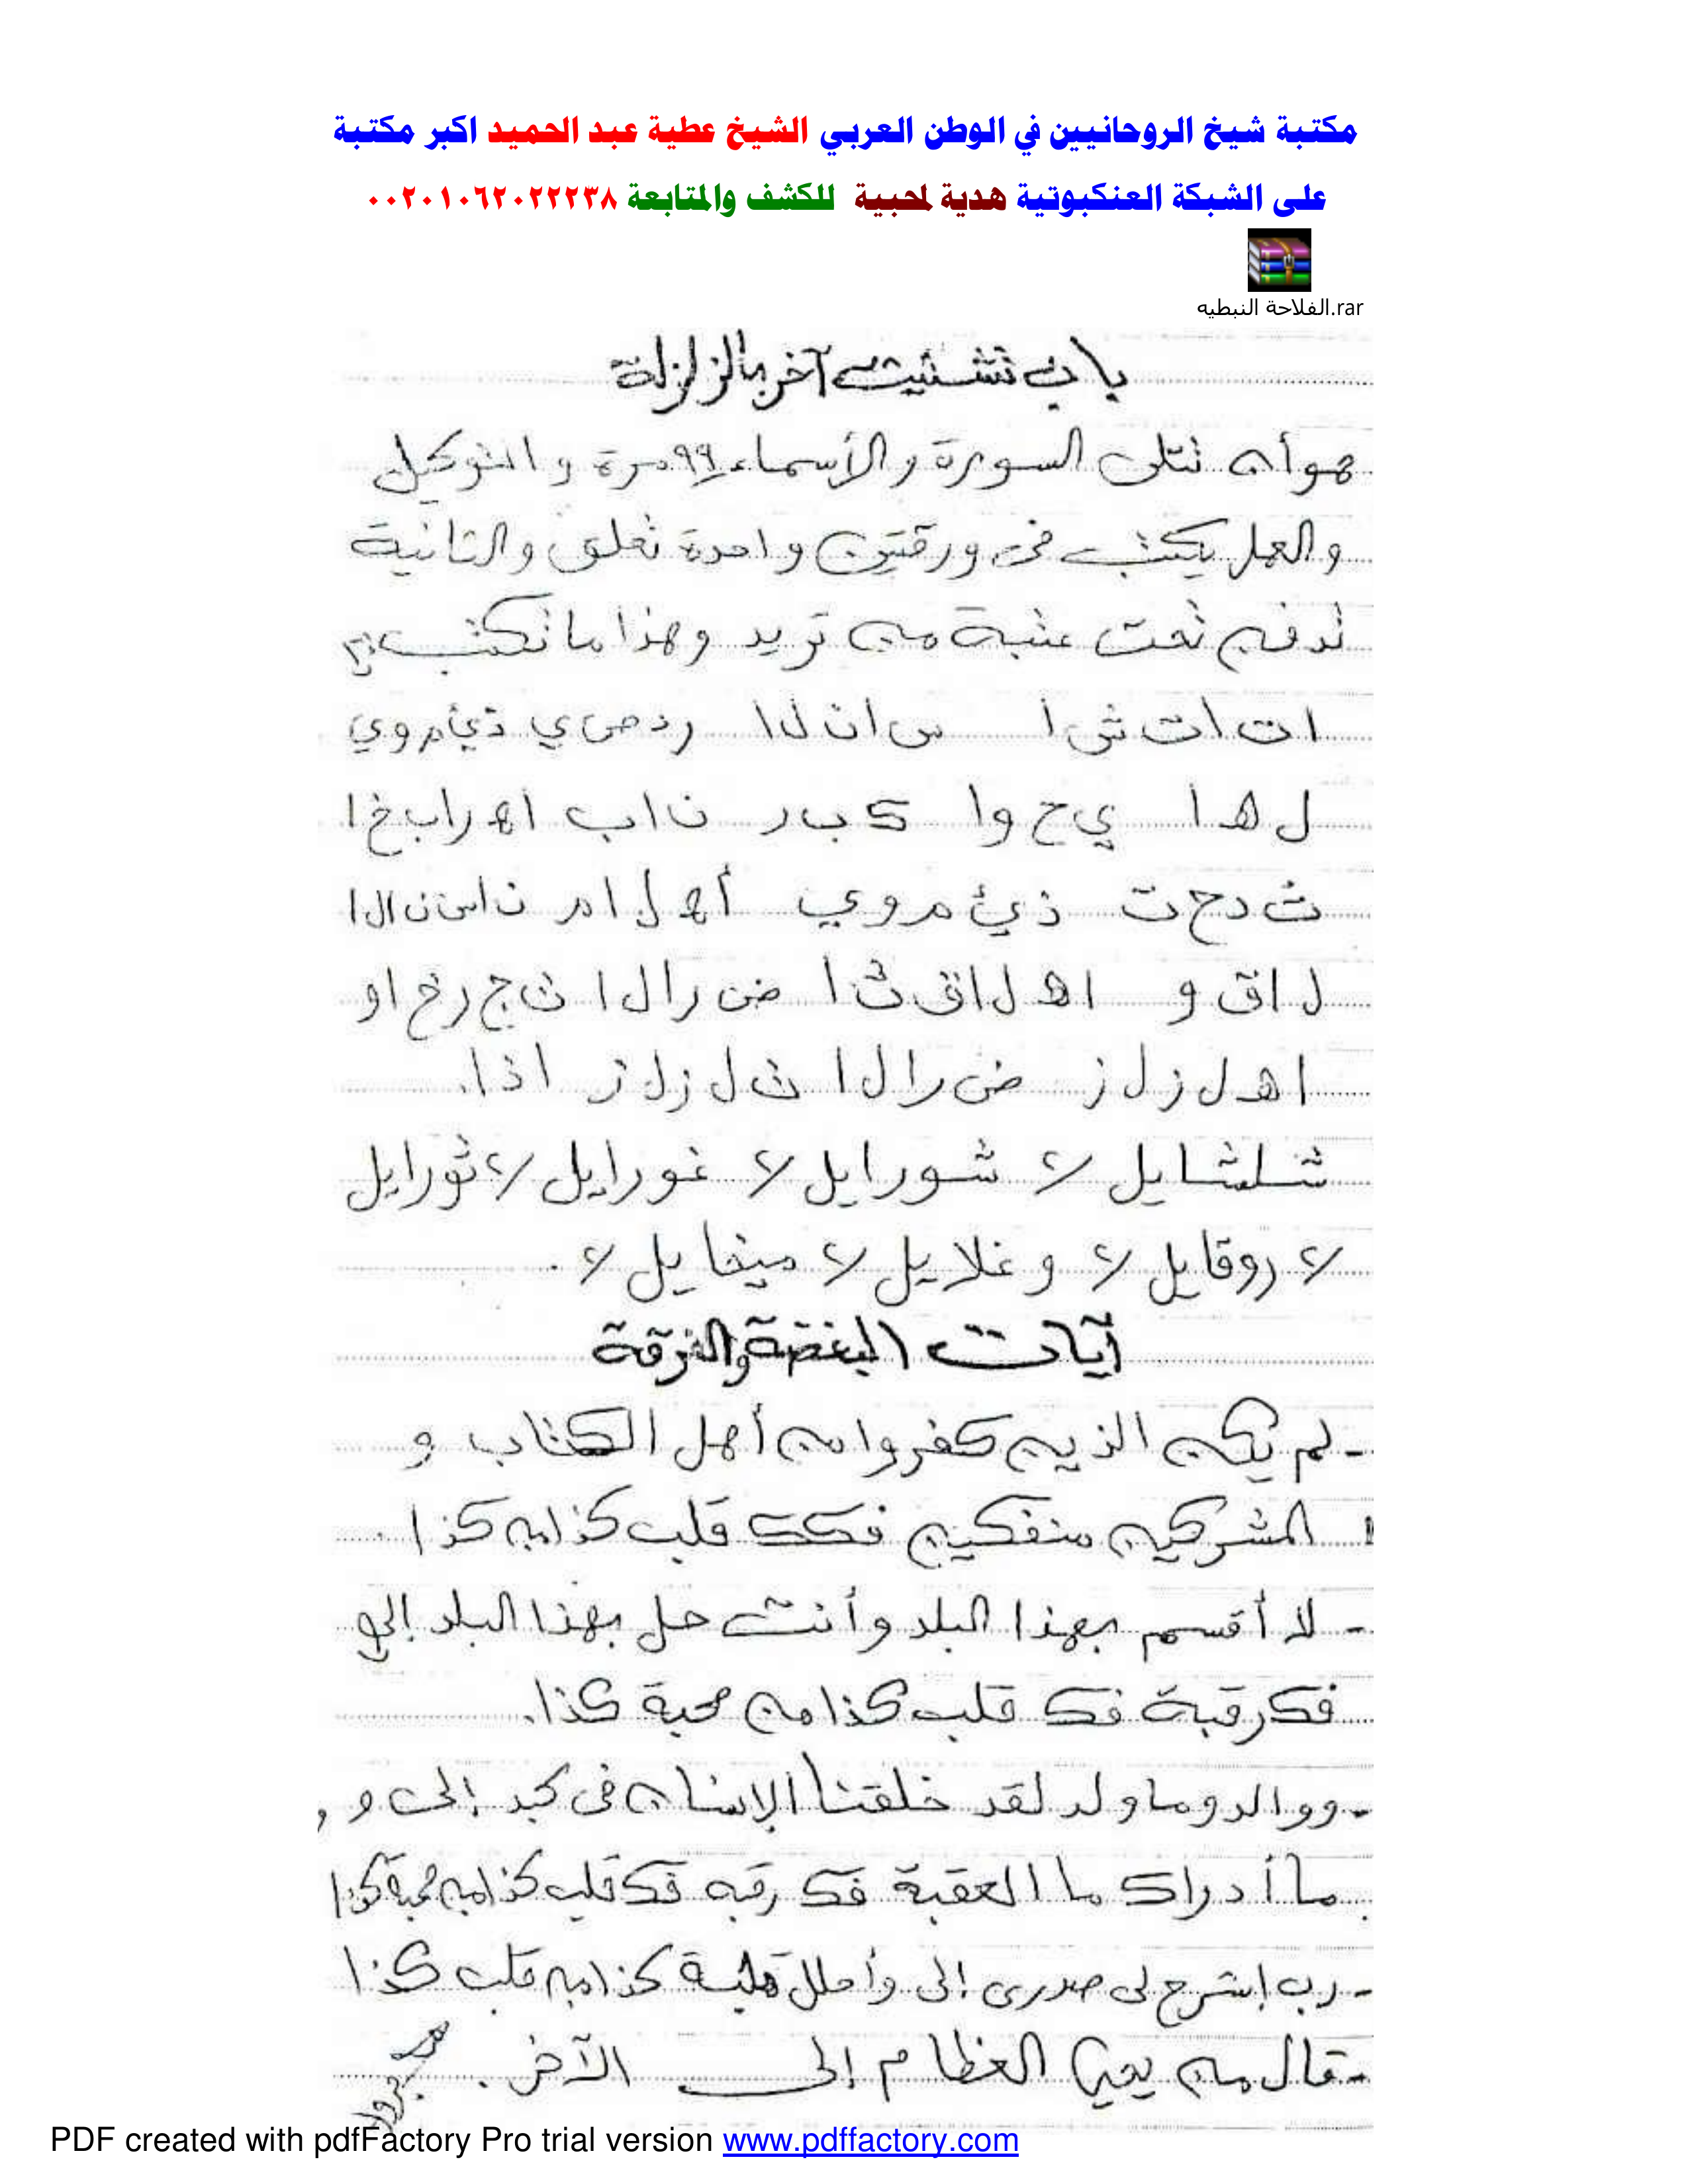 مكتبة شيخ الروحانيين في الوطن العربي الشيخ عطية عبد الحميد اكبر مكتبة
على الشبكة العنكبوتية هدية لمحبيية للكشف والمتابعة ٠٠٢٠١٠٦٢٠٢٢٢٣٨
الفلاحة النبطيه.rar
باب تشتيت آخر بالزلزلة
هو أن تتلى السورة والأسماء ٩٩ مرة والتوكيل
والعمل يكتب فى ورقتين واحدة تعلق والثانية
تدفن تحت عتبة من تريد وهذا ما تكتب
ا ت ا ت ش ا س ا ن ل ا ر د ص ي ي ذ ئ م و ي
ل ه ا ي ح و ا ك ب ر ن ا ب ا ه ر ا ب خ ا
ث د ح ت ذ ئ م و ي أ ه ل ا م ن ا س ن ال ا
ل ا ق و ا ه ل ا ق ث ا ض ر ا ل ا ت ج ر خ ا و
ا ه ل ز ل ز ض ر ا ل ا ت ل ز ل ز ا ذ ا .
شلشايل ٧ شورايل ٧ غورايل ٧ ثورايل
٧ روقايل ٧ وغلايل ٧ ميخايل ٧ .
آيات البغضة والفرقة
- لم يكن الذين كفروا من أهل الكتاب و
المشركين منفكين فكك قلب كذا من كذا .
- لا أقسم بهذا البلد وأنت حل بهذا البلد إلى
فك رقبة فك قلب كذا من محبة كذا .
- ووالد وما ولد لقد خلقنا الإنسان فى كبد إلى و
ما أدراك ما العقبة فك رقبه فك قلب كذا من محبة كذا
- رب إشرح لى صدرى إلى وأحلل كذا من قلب كذا
- قال من يحي العظام إلى الآخر .
PDF created with pdfFactory Pro trial version www.pdffactory.com